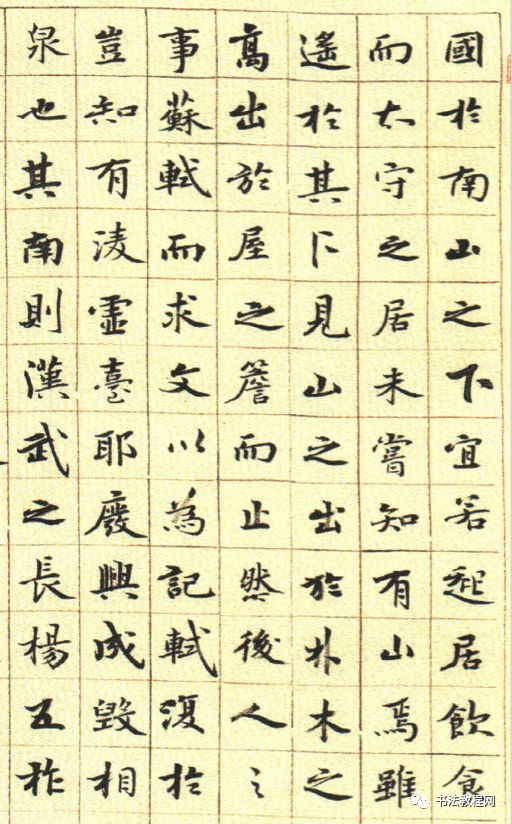 國於南山之下宜若起居飲食
而太守之居未嘗知有山焉雖
遙於其下見山之出於林木之
高出於屋之簷而止然後人之
事蘇軾而求文以為記軾復於
豈知有凌虛臺耶廢興成毀相
泉也其南則漢武之長楊五柞
书法教程网